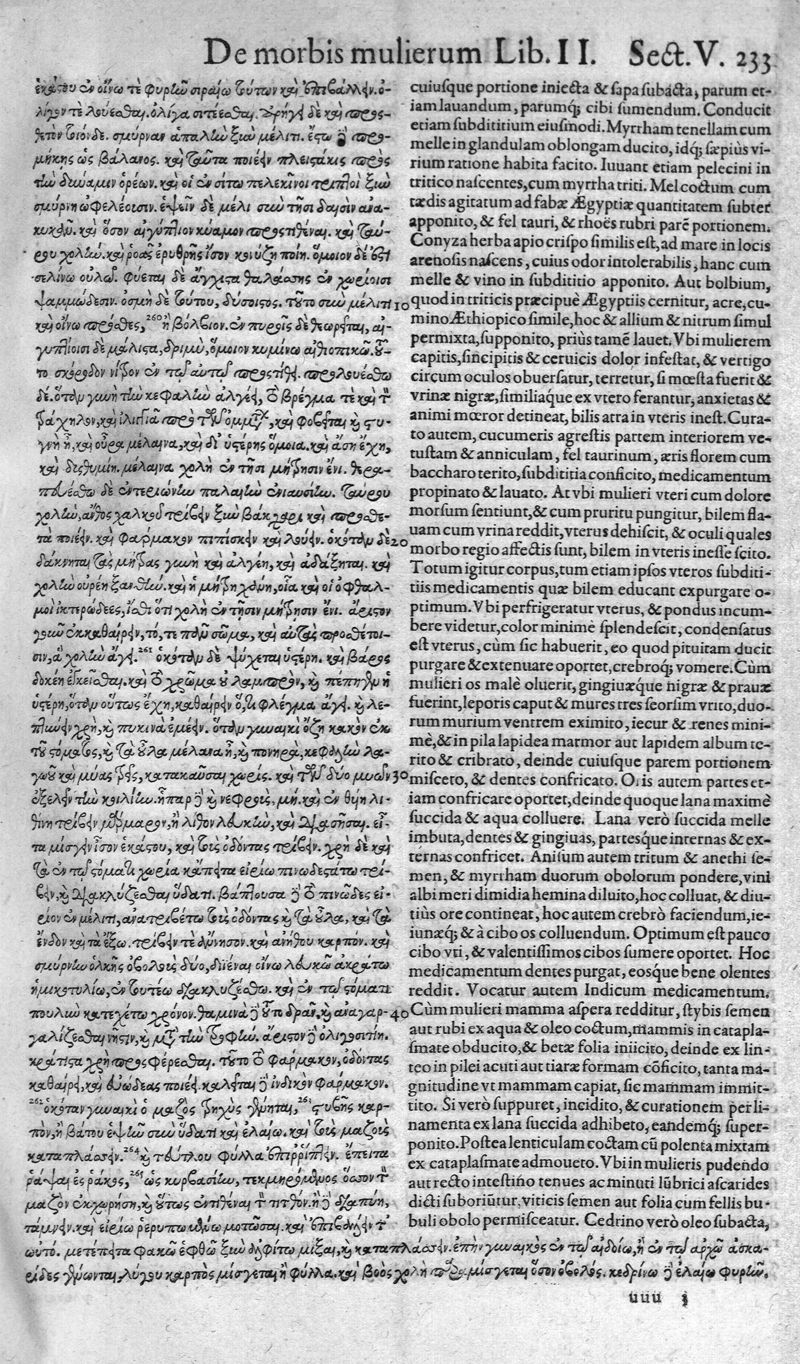 De morbis mulierum Lib. II. Sect. V. 233
ἑκάστου ἐν οἴνῳ τε φυρῶν σιραίῳ καὶ ἐπιβάλλειν. ὀ-
λίγον τε λούεσθαι. ὀλίγα σιτέεσθαι. δὲ καὶ πρόσ-
θετον τοιόνδε. σμύρναν ἁπαλὴν ξὺν μέλιτι. ἔστω
μήκης ὡς βάλανος. καὶ ταῦτα ποιέειν πλειστάκις πρὸς
τὴν δύναμιν ὁρέων. καὶ οἱ ἐν σίτῳ πελεκῖνοι τριπτοὶ ξὺν
σμύρνῃ ὠφελέουσιν. ἑψεῖν δὲ μέλι σὺν τῇσι δαισὶν ἀνα-
κυκῶν. καὶ ὅσον αἰγύπτιον κύαμον προστιθέναι. καὶ ταύ-
ρου χολὴν. καὶ ῥοᾶς ἐρυθρῆς ἴσον ποίη. ὅμοιον δὲ ἐστὶ
σελίνῳ οὔλῳ. φύεται δὲ ἄγχιστα θαλάσσης ἐν χωρίοισι
ψαμμώδεσιν. ὀσμὴ δὲ τούτου, δύσοιστος. τοῦτο σὺν μέλιτι 10
καὶ οἴνῳ πρόσθες, ²⁶⁰ ἢ βόλβιον. ἐν πυρεῖς δὲ θεωρεῖται, αἰ-
γυπτίοισι δὲ μάλιστα, δριμὺ, ὅμοιον κυμίνῳ αἰθιοπικῷ.
σκόροδον νίτρον ἐν τῷ αὐτῷ προστίθει. προλουέσθω
δέ. ὁτὰν γυνὴ τὴν κεφαλὴν ἀλγέῃ, βρέγμα τε καὶ τὸν
τράχηλον, καὶ ἰλιγγιᾷ πρὸ τῶν ὀμμάτων, καὶ φοβῆται καὶ στυ-
γνὴ ᾖ, καὶ οὖρα μέλαινα, καὶ δι' ὑστέρης ὅμοια. καὶ ἄση ἔχῃ,
καὶ δυσθυμίη. μέλαινα χολὴ ἐν τῇσι μήτρῃσιν ἔνι. θερα-
πευέσθω δὲ ἐντεριώνην παλαιὴν ἐνιαυσίην. ταύρου
χολὴν, ἄνθος χαλκοῦ τρίβειν ξὺν βακχάρι καὶ πρόσθε-
τα ποιέειν. καὶ φάρμακον πιπίσκειν καὶ λούειν. ὁκόταν δὲ 20
δάκνηται τὰς μήτρας γυνὴ καὶ ἀλγέῃ, καὶ ἀδάξηται. καὶ
χολὴν οὐρέῃ ξανθὴν. καὶ ἡ μήτρη χάνῃ, οἷα καὶ οἱ ὀφθαλ-
μοὶ ἰκτερώδεες, ἴσθι ὅτι χολὴ ἐν τῇσιν μήτρῃσιν ἔνι. ἄριστον
ἐκκαθαίρειν, τό, τε πᾶν σῶμα, καὶ αὐτὰς προσθέτοι-
σιν, ἃ χολὴν ἄγει. ²⁶¹ ὁκόταν δὲ ψύχεται ὑστέρη. καὶ βάρος
δοκέῃ ἐγκεῖσθαι. καὶ χρῶμα οὐ λαμπρὸν, καὶ πεπηγῇ ἡ
ὑστέρη, ὁτὰν οὕτως ἔχῃ, καθαίρειν φλέγμα ἄγει. καὶ λε-
πτύνειν χρὴ, καὶ πυκινὰ ἐμέειν. ὁτὰν γυναικὶ ὄζῃ κακὸν ἐκ
τοῦ στόματος, καὶ τὰ οὖλα μέλανα ᾖ, καὶ πονηρὰ, κεφαλὴν λα-
γωοῦ καὶ μύας τρεῖς, κατακαῦσαι χωρὶς. καὶ τῶν δύο μυῶν 30
ἐξελεῖν τὴν κοιλίην. ἧπαρ καὶ νεφροὺς, μή. καὶ ἐν θυίῃ λι-
θίνῃ τρίβειν μάρμαρον, ἢ λίθον λευκὴν, καὶ διασῆσαι. εἶ-
τα μίσγειν ἴσον ἑκάστου, καὶ τοὺς ὀδόντας τρίβειν. χρὴ δὲ καὶ
τὰ ἐν τῷ στόματι χωρία κἄπειτα εἰρίῳ πινωδεστάτῳ τρί-
βειν, καὶ διακλύζεσθαι ὕδατι. βάπτουσα πινῶδες εἴ-
ριον ἐν μέλιτι, ἀνατριβέτω τοὺς ὀδόντας καὶ τὰ οὖλα, καὶ τὰ
ἔνδον καὶ τὰ ἔξω. τρίβειν τε ἄννησον. καὶ ἀνήθου καρπόν. καὶ
σμύρνην ὁλκῆς ὀβολοὺς δύο, διϊέναι οἴνῳ λευκῷ ἀκρήτῳ
ἡμικοτυλίῳ, ἐν τουτέῳ διακλυζέσθω. καὶ ἐν τῷ στόματι
πουλὺν κατεχέτω χρόνον. θαμινὰ τοῦτο δρᾶν, καὶ ἀναγαρ- 40
γαλίζεσθαι νῆστιν, καὶ μετὰ τὴν τροφὴν. ἄριστον ὀλιγοσιτίη.
κράτιστα χρὴ προσφέρεσθαι. τοῦτο φάρμακον, ὀδόντας
καθαίρει, καὶ εὐώδεας ποιέει, καλεῖται ἰνδικὸν φάρμακον.
²⁶² ὁκόταν γυναικὶ ὁ μαζὸς τρηχὺς γένηται, στύβης καρ-
πὸν, ἢ βάτου ἑψῶν σὺν ὕδατι καὶ ἐλαίῳ. καὶ τοὺς μαζοὺς
καταπλάσσειν. ²⁶⁴ καὶ τεύτλου φύλλα ἐπιρρίπτειν. ἔπειτα
ῥάψαι ἐς ῥάκος, ὡς κυρβασίην, τεκμηράμενος ὅσον τὸν
μαζὸν ἐκχωρήσῃ, καὶ οὕτως ἐντιθέναι τὸν τιτθόν. ἢν διαπυῇ,
τάμνειν. καὶ εἰρίῳ ἐρρυπωμένῳ μοτῶσαι. καὶ ἐπιβάλλειν τὸν
ωὐτό. μετέπειτα φακῷ ἑφθῷ ξὺν ἀλφίτῳ μίξαι, καὶ καταπλάσσειν. ἐπὴν γυναικὸς ἐν τῷ αἰδοίῳ, ἢ ἐν τῷ ἀρχῷ ἀσκα-
ρίδες γένωνται, λύγου καρπὸς μίσγεται ἢ φύλλα. καὶ βοὸς χολὴ παραμίσγεται ὅσον ὀβολός. κεδρίνῳ ἐλαίῳ φυρῶν,
cuiusque portione iniecta & sapa subacta, parum et-
iam lauandum, parumq; cibi sumendum. Conducit
etiam subdititium eiusmodi. Myrrham tenellam cum
melle in glandulam oblongam ducito, idq; sæpius vi-
rium ratione habita facito. Iuuant etiam pelecini in
tritico nascentes, cum myrrha triti. Mel coctum cum
tædis agitatum ad fabæ Ægyptiæ quantitatem subter
apponito, & fel tauri, & rhoës rubri parē portionem.
Conyza herba apio crispo similis est, ad mare in locis
arenosis nascens, cuius odor intolerabilis, hanc cum
melle & vino in subdititio apponito. Aut bolbium,
quod in triticis præcipuè Ægyptiis cernitur, acre, cu-
mino Æthiopico simile, hoc & allium & nitrum simul
permixta, supponito, priùs tamē lauet. Vbi mulierem
capitis, sincipitis & ceruicis dolor infestat, & vertigo
circum oculos obuersatur, terretur, si mœsta fuerit &
vrinæ nigræ, similiaque ex vtero ferantur, anxietas &
animi mœror detineat, bilis atra in vteris inest. Cura-
to autem, cucumeris agrestis partem interiorem ve-
tustam & anniculam, fel taurinum, æris florem cum
baccharo terito, subdititia conficito, medicamentum
propinato & lauato. At vbi mulieri vteri cum dolore
morsum sentiunt, & cum pruritu pungitur, bilem fla-
uam cum vrina reddit, vterus dehiscit, & oculi quales
morbo regio affectis sunt, bilem in vteris inesse scito.
Totum igitur corpus, tum etiam ipsos vteros subditi-
tiis medicamentis quæ bilem educant expurgare o-
ptimum. Vbi perfrigeratur vterus, & pondus incum-
bere videtur, color minimè splendescit, condensatus
est vterus, cùm sic habuerit, eo quod pituitam ducit
purgare & extenuare oportet, crebroq; vomere. Cùm
mulieri os malè oluerit, gingiuæque nigræ & prauæ
fuerint, leporis caput & mures tres seorsim vrito, duo-
rum murium ventrem eximito, iecur & renes mini-
mè, & in pila lapidea marmor aut lapidem album te-
rito & cribrato, deinde cuiusque parem portionem
misceto, & dentes confricato. Oris autem partes et-
iam confricare oportet, deinde quoque lana maximè
succida & aqua colluere. Lana verò succida melle
imbuta, dentes & gingiuas, partesque internas & ex-
ternas confricet. Anisum autem tritum & anethi se-
men, & myrrham duorum obolorum pondere, vini
albi meri dimidia hemina diluito, hoc colluat, & diu-
tiùs ore contineat, hoc autem crebrò faciendum, ie-
iunæq; & à cibo os colluendum. Optimum est pauco
cibo vti, & valentissimos cibos sumere oportet. Hoc
medicamentum dentes purgat, eosque bene olentes
reddit. Vocatur autem Indicum medicamentum.
Cùm mulieri mamma aspera redditur, stybis semen
aut rubi ex aqua & oleo coctum, mammis in catapla-
smate obducito, & betæ folia iniicito, deinde ex lin-
teo in pilei acuti aut tiaræ formam cōficito, tanta ma-
gnitudine vt mammam capiat, sic mammam immit-
tito. Si verò suppuret, incidito, & curationem per li-
namenta ex lana succida adhibeto, eandemq; super-
ponito. Postea lenticulam coctam cū polenta mixtam
ex cataplasmate admoueto. Vbi in mulieris pudendo
aut recto intestino tenues ac minuti lūbrici ascarides
dicti suboriūtur, viticis semen aut folia cum fellis bu-
buli obolo permisceatur. Cedrino verò oleo subacta,
uuu ij